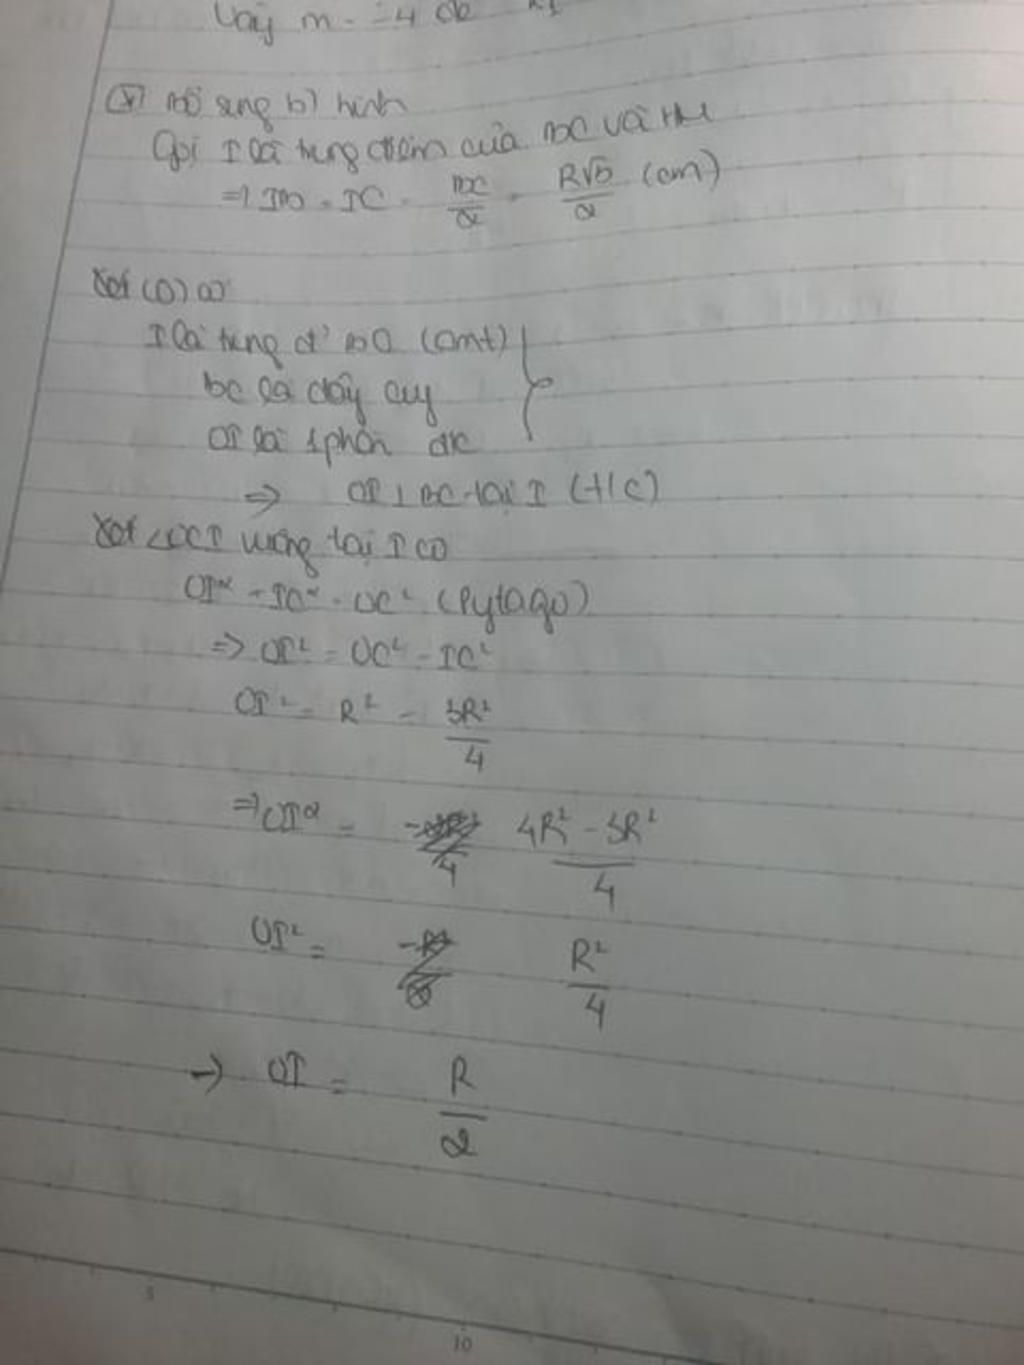 Vậy m = -4 để
Ⓥ Bổ sung b) hình
Gọi I là trung điểm của BC và HK
=> IB = IC = BC/2 = R√3/2 (cm)
Xét (O) có
I là trung đ' BC (cmt)
BC là dây cung
OI là 1 phần đk
=> OI ⊥ BC tại I (t/c)
Xét △OCI vuông tại I có
OI² + IC² = OC² (Pytago)
=> OI² = OC² - IC²
OI² = R² - 3R²/4
=> OI² = 4R² - 3R²/4
OI² = R²/4
-> OI = R/2
5
10